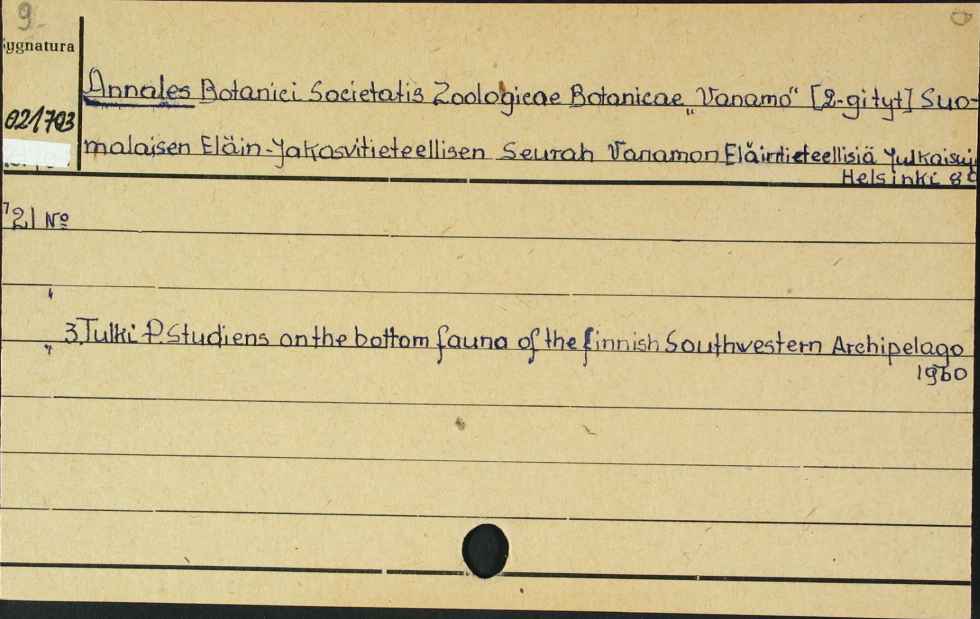 9.
Sygnatura
Annales Botanici Societatis Zoologicae Botanicae „Vanamo“ [2-gi tyt] Suo-
021703
malaisen Eläin-Jakasvitieteellisen Seurah Vanamon Eläintieteellisiä Julkaisuj
Helsinki 8°
21 No
" 3. Tulki P. Studiens on the bottom fauna of the finnish Southwestern Archipelago
" 1960